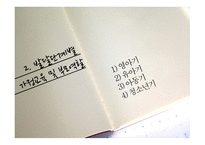 2. 발달단계별
가정교육 및 부모역할
1) 영아기
2) 유아기
3) 아동기
4) 청소년기